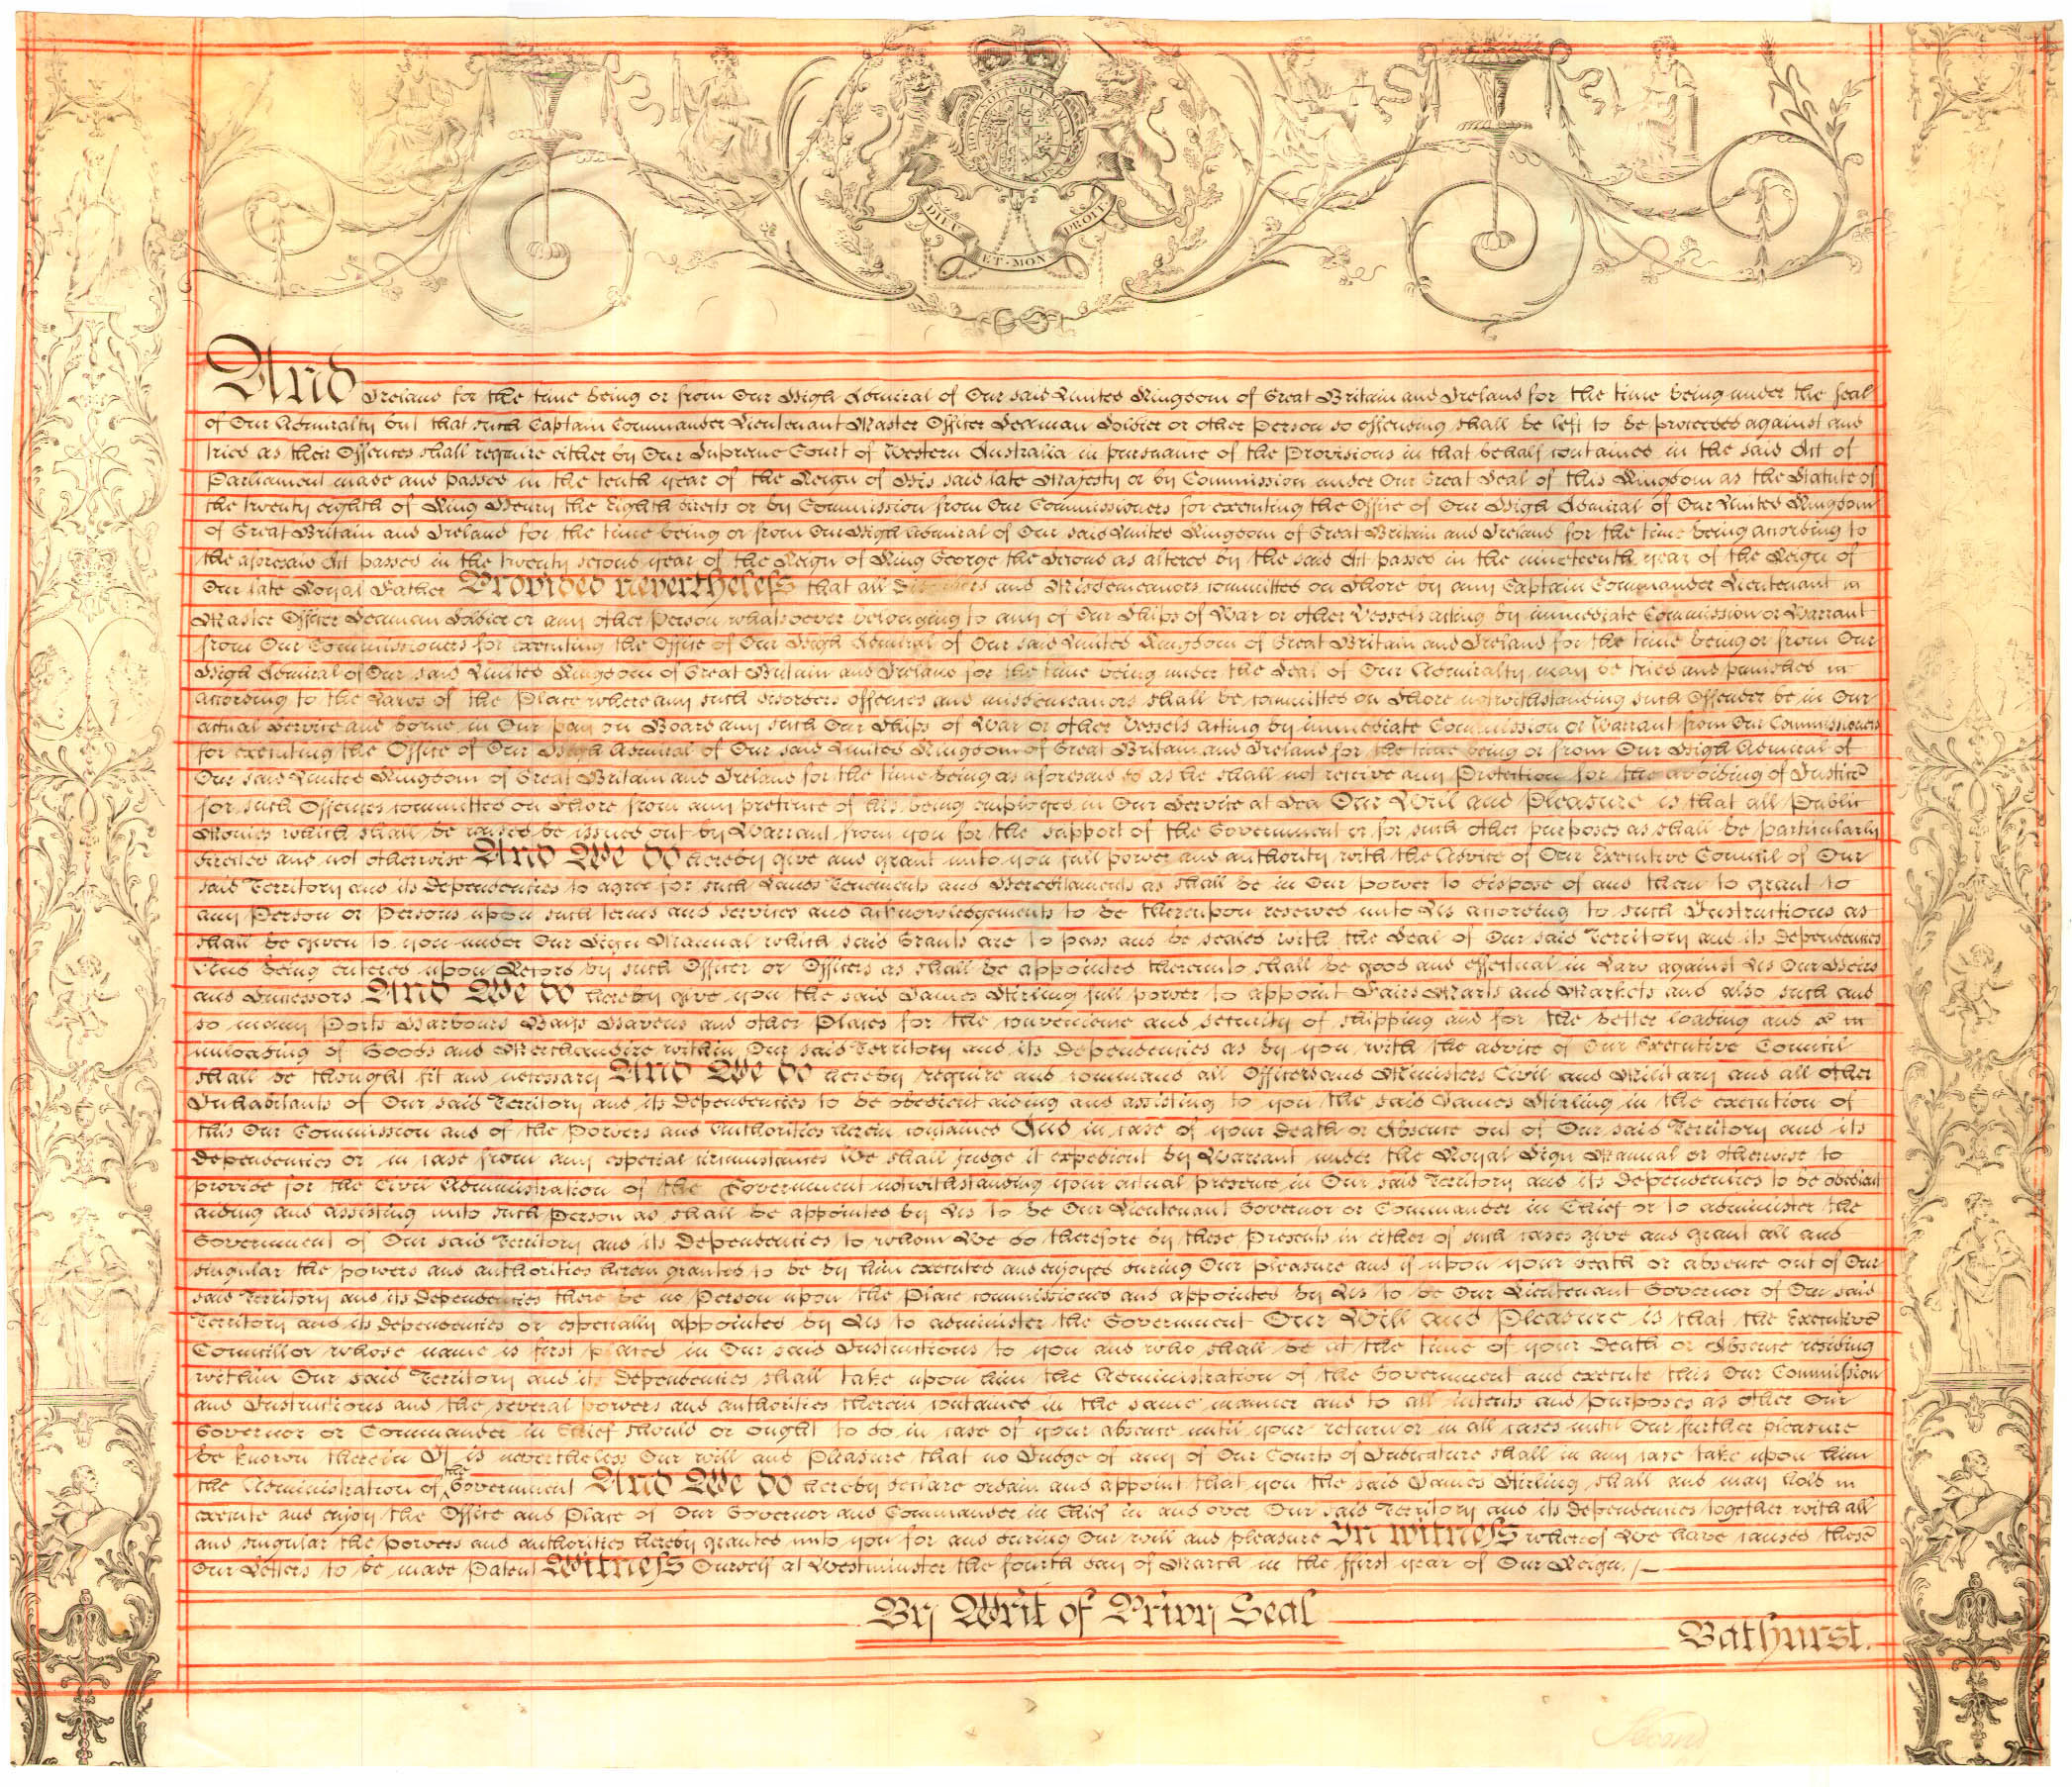 HONI · SOIT · QUI · MAL · Y · PENSE
DIEU ET · MON DROIT
And Ireland for the time being or from Our High Admiral of Our said United Kingdom of Great Britain and Ireland for the time being under the seal
of Our Admiralty but that such Captain Commander Lieutenant Master Officer Seaman Soldier or other Person so offending shall be left to be proceeded against and
tried as their Offences shall require either by Our Supreme Court of Western Australia in pursuance of the Provisions in that behalf contained in the said Act of
Parliament made and passed in the tenth year of the Reign of His said late Majesty or by Commission under Our Great Seal of this Kingdom as the Statute of
the twenty eighth of King Henry the Eighth directs or by Commission from Our Commissioners for executing the Office of Our High Admiral of Our United Kingdom
of Great Britain and Ireland for the time being or from Our High Admiral of Our said United Kingdom of Great Britain and Ireland for the time being according to
the aforesaid Act passed in the twenty second year of the Reign of King George the Second as altered by the said Act passed in the nineteenth year of the Reign of
Our late Royal Father Provided nevertheless that all and Misdemeanors committed on Shore by any Captain Commander Lieutenant
Master Officer Seaman Soldier or any other Person whatsoever belonging to any of Our Ships of War or other Vessels acting by immediate Commission or Warrant
from Our Commissioners for executing the Office of Our High Admiral of Our said United Kingdom of Great Britain and Ireland for the time being or from Our
High Admiral of Our said United Kingdom of Great Britain and Ireland for the time being under the Seal of Our Admiralty may be tried and punished
according to the Laws of the Place where any such disorders offences and misdemeanors shall be committed on Shore notwithstanding such Offender be in Our
actual Service and borne in Our pay on Board any such Our Ships of War or other Vessels acting by immediate Commission or Warrant from Our Commissioners
for executing the Office of Our High Admiral of Our said United Kingdom of Great Britain and Ireland for the time being or from Our High Admiral of
Our said United Kingdom of Great Britain and Ireland for the time being as aforesaid so as he shall not receive any Protection for the avoiding of Justice
for such Offences committed on Shore from any pretence of his being employed in Our Service at Sea Our Will and Pleasure is that all Public
Monies which shall be raised be issued out by Warrant from you for the support of the Government or for such other purposes as shall be particularly
directed and not otherwise And We do hereby give and grant unto you full power and authority with the Advice of Our Executive Council of Our
said Territory and its Dependencies to agree for such Lands Tenements and Hereditaments as shall be in Our power to dispose of and them to grant to
any Person or Persons upon such terms and services and acknowledgements to be thereupon reserved unto Us according to such Instructions as
shall be given to you under Our Sign Manual which said Grants are to pass and be sealed with the Seal of Our said Territory and its Dependencies
And being entered upon Record by such Officer or Officers as shall be appointed thereunto shall be good and effectual in Law against Us Our Heirs
and Successors And We do hereby give you the said James Stirling full power to appoint Fairs Marts and Markets and also such and
so many Ports Harbours Bays Havens and other Places for the convenience and security of shipping and for the better loading and
unloading of Goods and Merchandize within Our said Territory and its Dependencies as by you with the advice of Our Executive Council
shall be thought fit and necessary And We do hereby require and command all Officers and Ministers Civil and Military and all other
Inhabitants of Our said Territory and its Dependencies to be obedient aiding and assisting to you the said James Stirling in the execution of
this Our Commission and of the Powers and Authorities herein contained And in case of your Death or Absence out of Our said Territory and its
Dependencies or in case from any especial circumstances We shall judge it expedient by Warrant under the Royal Sign Manual or otherwise to
provide for the Civil Administration of the Government notwithstanding your actual presence in Our said Territory and its Dependencies to be obedient
aiding and assisting unto such Person as shall be appointed by Us to be Our Lieutenant Governor or Commander in Chief or to administer the
Government of Our said Territory and its Dependencies to whom We do therefore by these Presents in either of such cases give and grant all and
singular the powers and authorities herein granted to be by him executed and enjoyed during Our pleasure and if upon your death or absence out of Our
said Territory and its Dependencies there be no Person upon the Place commissioned and appointed by Us to be Our Lieutenant Governor of Our said
Territory and its Dependencies or especially appointed by Us to administer the Government Our Will and Pleasure is that the Executive
Councillor whose name is first placed in Our said Instructions to you and who shall be at the time of your Death or Absence residing
within Our said Territory and its Dependencies shall take upon him the Administration of the Government and execute this Our Commission
and Instructions and the several powers and authorities therein contained in the same manner and to all intents and purposes as other Our
Governor or Commander in Chief should or ought to do in case of your absence until your return or in all cases until Our further pleasure
be known therein It is nevertheless Our will and Pleasure that no Judge of any of Our Courts of Judicature shall in any case take upon him
the Administration of the Government And We do hereby declare ordain and appoint that you the said James Stirling shall and may hold
execute and enjoy the Office and Place of Our Governor and Commander in Chief in and over Our said Territory and its Dependencies together with all
and singular the powers and authorities hereby granted unto you for and during Our will and pleasure In Witness whereof We have caused these
Our Letters to be made Patent Witness Ourself at Westminster the fourth day of March in the first year of Our Reign./
By Writ of Privy Seal
Bathurst.
Second